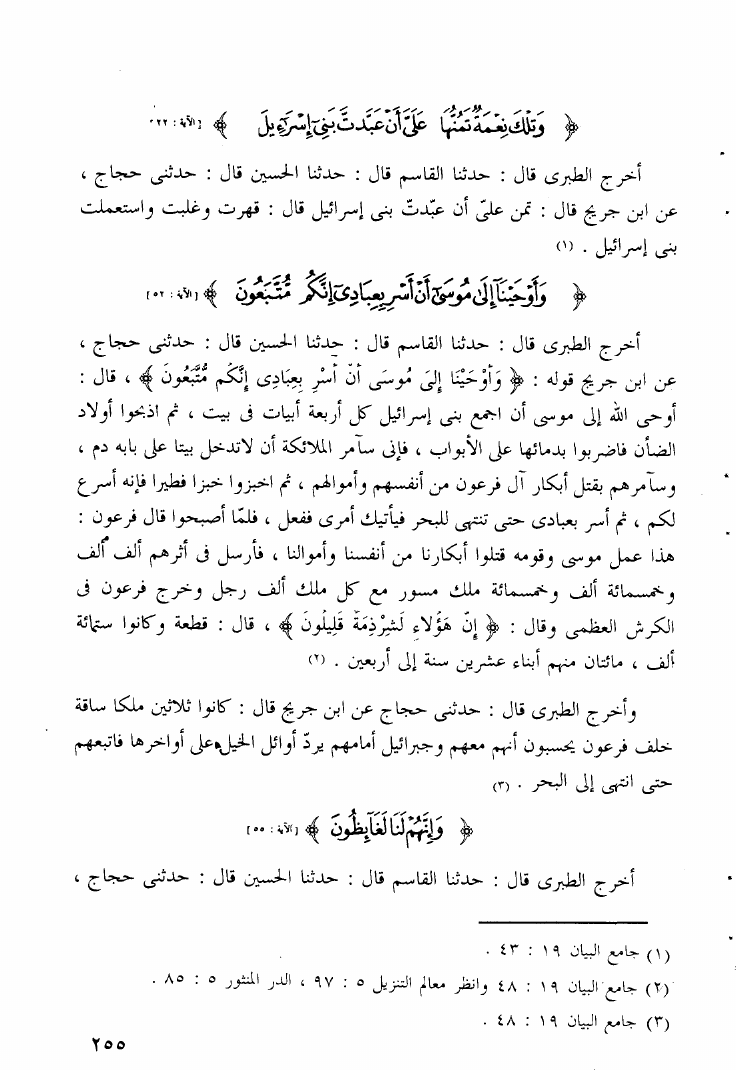 ﴿ وَتِلْكَ نِعْمَةٌ تَمُنُّهَا عَلَىَّ أَنْ عَبَّدتَّ بَنِىٓ إِسْرَٰٓءِيلَ ﴾ [الآية : ٢٢]
أخرج الطبرى قال : حدثنا القاسم قال : حدثنا الحسين قال : حدثنى حجاج ،
عن ابن جريج قال : تمن علىّ أن عبّدتّ بنى إسرائيل قال : قهرت وغلبت واستعملت
بنى إسرائيل . (١)
﴿ وَأَوْحَيْنَآ إِلَىٰ مُوسَىٰٓ أَنْ أَسْرِ بِعِبَادِىٓ إِنَّكُم مُّتَّبَعُونَ ﴾ [الآية : ٥٢]
أخرج الطبرى قال : حدثنا القاسم قال : حدثنا الحسين قال : حدثنى حجاج ،
عن ابن جريج قوله : ﴿ وَأَوْحَيْنَا إِلىَ مُوسَى أَنْ أَسْرِ بِعِبَادِى إِنَّكُم مُّتَّبَعُونَ ﴾ ، قال :
أوحى الله إلى موسى أن اجمع بنى إسرائيل كل أربعة أبيات فى بيت ، ثم اذبحوا أولاد
الضأن فاضربوا بدمائها على الأبواب ، فإنى سآمر الملائكة أن لاتدخل بيتا على بابه دم ،
وسآمرهم بقتل أبكار آل فرعون من أنفسهم وأموالهم ، ثم اخبزوا خبزا فطيرا فإنه أسرع
لكم ، ثم أسر بعبادى حتى تنتهى للبحر فيأتيك أمرى ففعل ، فلمّا أصبحوا قال فرعون :
هذا عمل موسى وقومه قتلوا أبكارنا من أنفسنا وأموالنا ، فأرسل فى أثرهم ألف ألف
وخمسمائة ألف وخمسمائة ملك مسور مع كل ملك ألف رجل وخرج فرعون فى
الكرش العظمى وقال : ﴿ إِنَّ هَؤُلاَءِ لَشِرْذِمَةٌ قَلِيلُونَ ﴾ ، قال : قطعة وكانوا ستمائة
ألف ، مائتان منهم أبناء عشرين سنة إلى أربعين . (٢)
وأخرج الطبرى قال : حدثنى حجاج عن ابن جريج قال : كانوا ثلاثين ملكا ساقة
خلف فرعون يحسبون أنهم معهم وجبرائيل أمامهم يردّ أوائل الخيل على أواخرها فاتبعهم
حتى انتهى إلى البحر . (٣)
﴿ وَإِنَّهُمْ لَنَا لَغَآئِظُونَ ﴾ [الآية : ٥٥]
أخرج الطبرى قال : حدثنا القاسم قال : حدثنا الحسين قال : حدثنى حجاج ،
(١) جامع البيان ١٩ : ٤٣ .
(٢) جامع البيان ١٩ : ٤٨ وانظر معالم التنزيل ٥ : ٩٧ ، الدر المنثور ٥ : ٨٥ .
(٣) جامع البيان ١٩ : ٤٨ .
٢٥٥